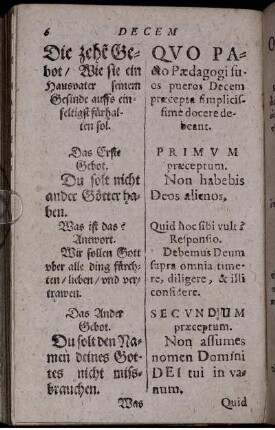 6 DECEM
Die zehē Ge-
bot / Wie sie ein
Hausvater seinem
Gesinde auffs ein-
feltigst fürhal-
ten sol.
Das Erste
Gebot.
Du solt nicht
ander Götter ha-
ben.
Was ist das?
Antwort.
Wir sollen Gott
vber alle ding fürch-
ten / lieben / vnd ver-
trawen.
Das Ander
Gebot.
Du solt den Na-
men deines Got-
tes nicht miss-
brauchen.
Was
QVO PA-
cto Pædagogi su-
os pueros Decem
præcepta simplicis-
sime docere de-
beant.
PRIMVM
præceptum.
Non habebis
Deos alienos.
Quid hoc sibi vult?
Responsio.
Debemus Deum
supra omnia time-
re, diligere, & illi
confidere.
SECVNDUM
præceptum.
Non assumes
nomen Domini
DEI tui in va-
num.
Quid